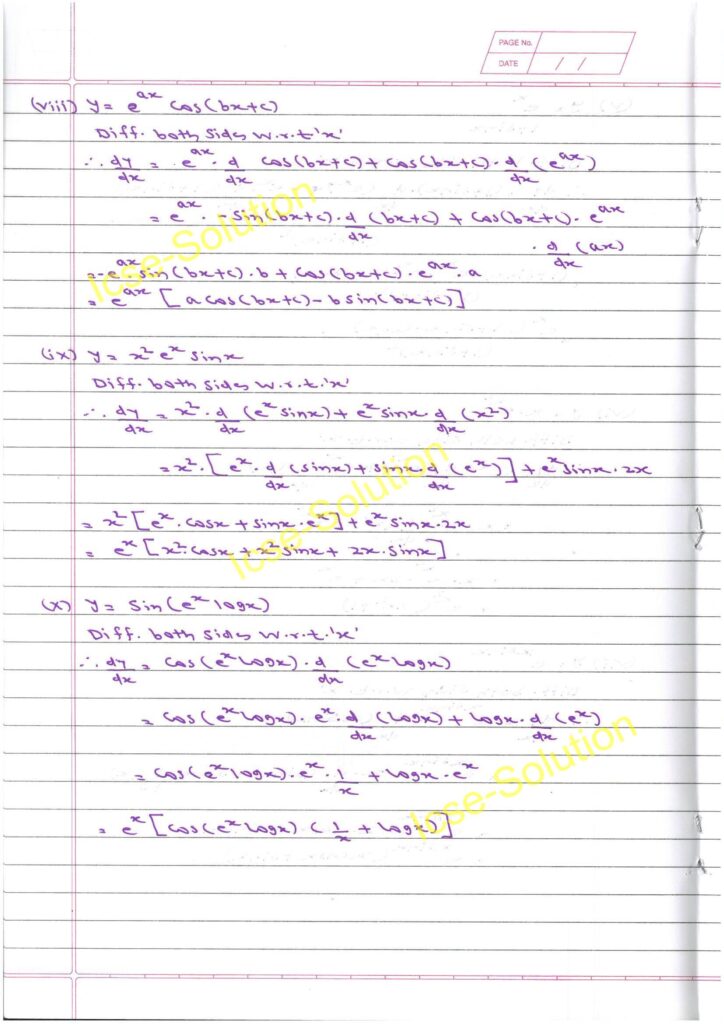 PAGE No.
DATE / /
(viii) y = e^ax cos(bx+c)
Diff. both sides w.r.t. 'x'
∴ dy/dx = e^ax · d/dx cos(bx+c) + cos(bx+c) · d/dx (e^ax)
= e^ax · -sin(bx+c) · d/dx (bx+c) + cos(bx+c) · e^ax
· d/dx (ax)
= -e^ax sin(bx+c) · b + cos(bx+c) · e^ax · a
= e^ax [a cos(bx+c) - b sin(bx+c)]
(ix) y = x² e^x sinx
Diff. both sides w.r.t. 'x'
∴ dy/dx = x² · d/dx (e^x sinx) + e^x sinx d/dx (x²)
= x² · [e^x · d/dx (sinx) + sinx d/dx (e^x)] + e^x sinx · 2x
= x² [e^x · cosx + sinx · e^x] + e^x sinx · 2x
= e^x [x² cosx + x² sinx + 2x · sinx]
(x) y = sin(e^x logx)
Diff. both sides w.r.t. 'x'
∴ dy/dx = cos(e^x logx) · d/dx (e^x logx)
= cos(e^x logx) · e^x · d/dx (logx) + logx · d/dx (e^x)
= cos(e^x logx) · e^x · 1/x + logx · e^x
= e^x [cos(e^x logx) (1/x + logx)]
Icse-Solution
Icse-Solution
Icse-Solution